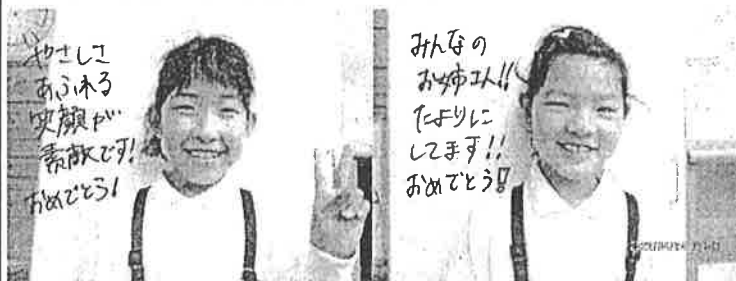 やさしさ
あふれる
笑顔が
素敵です!
おめでとう!
みんなの
お姉さん!!
たよりに
してます!!
おめでとう!!